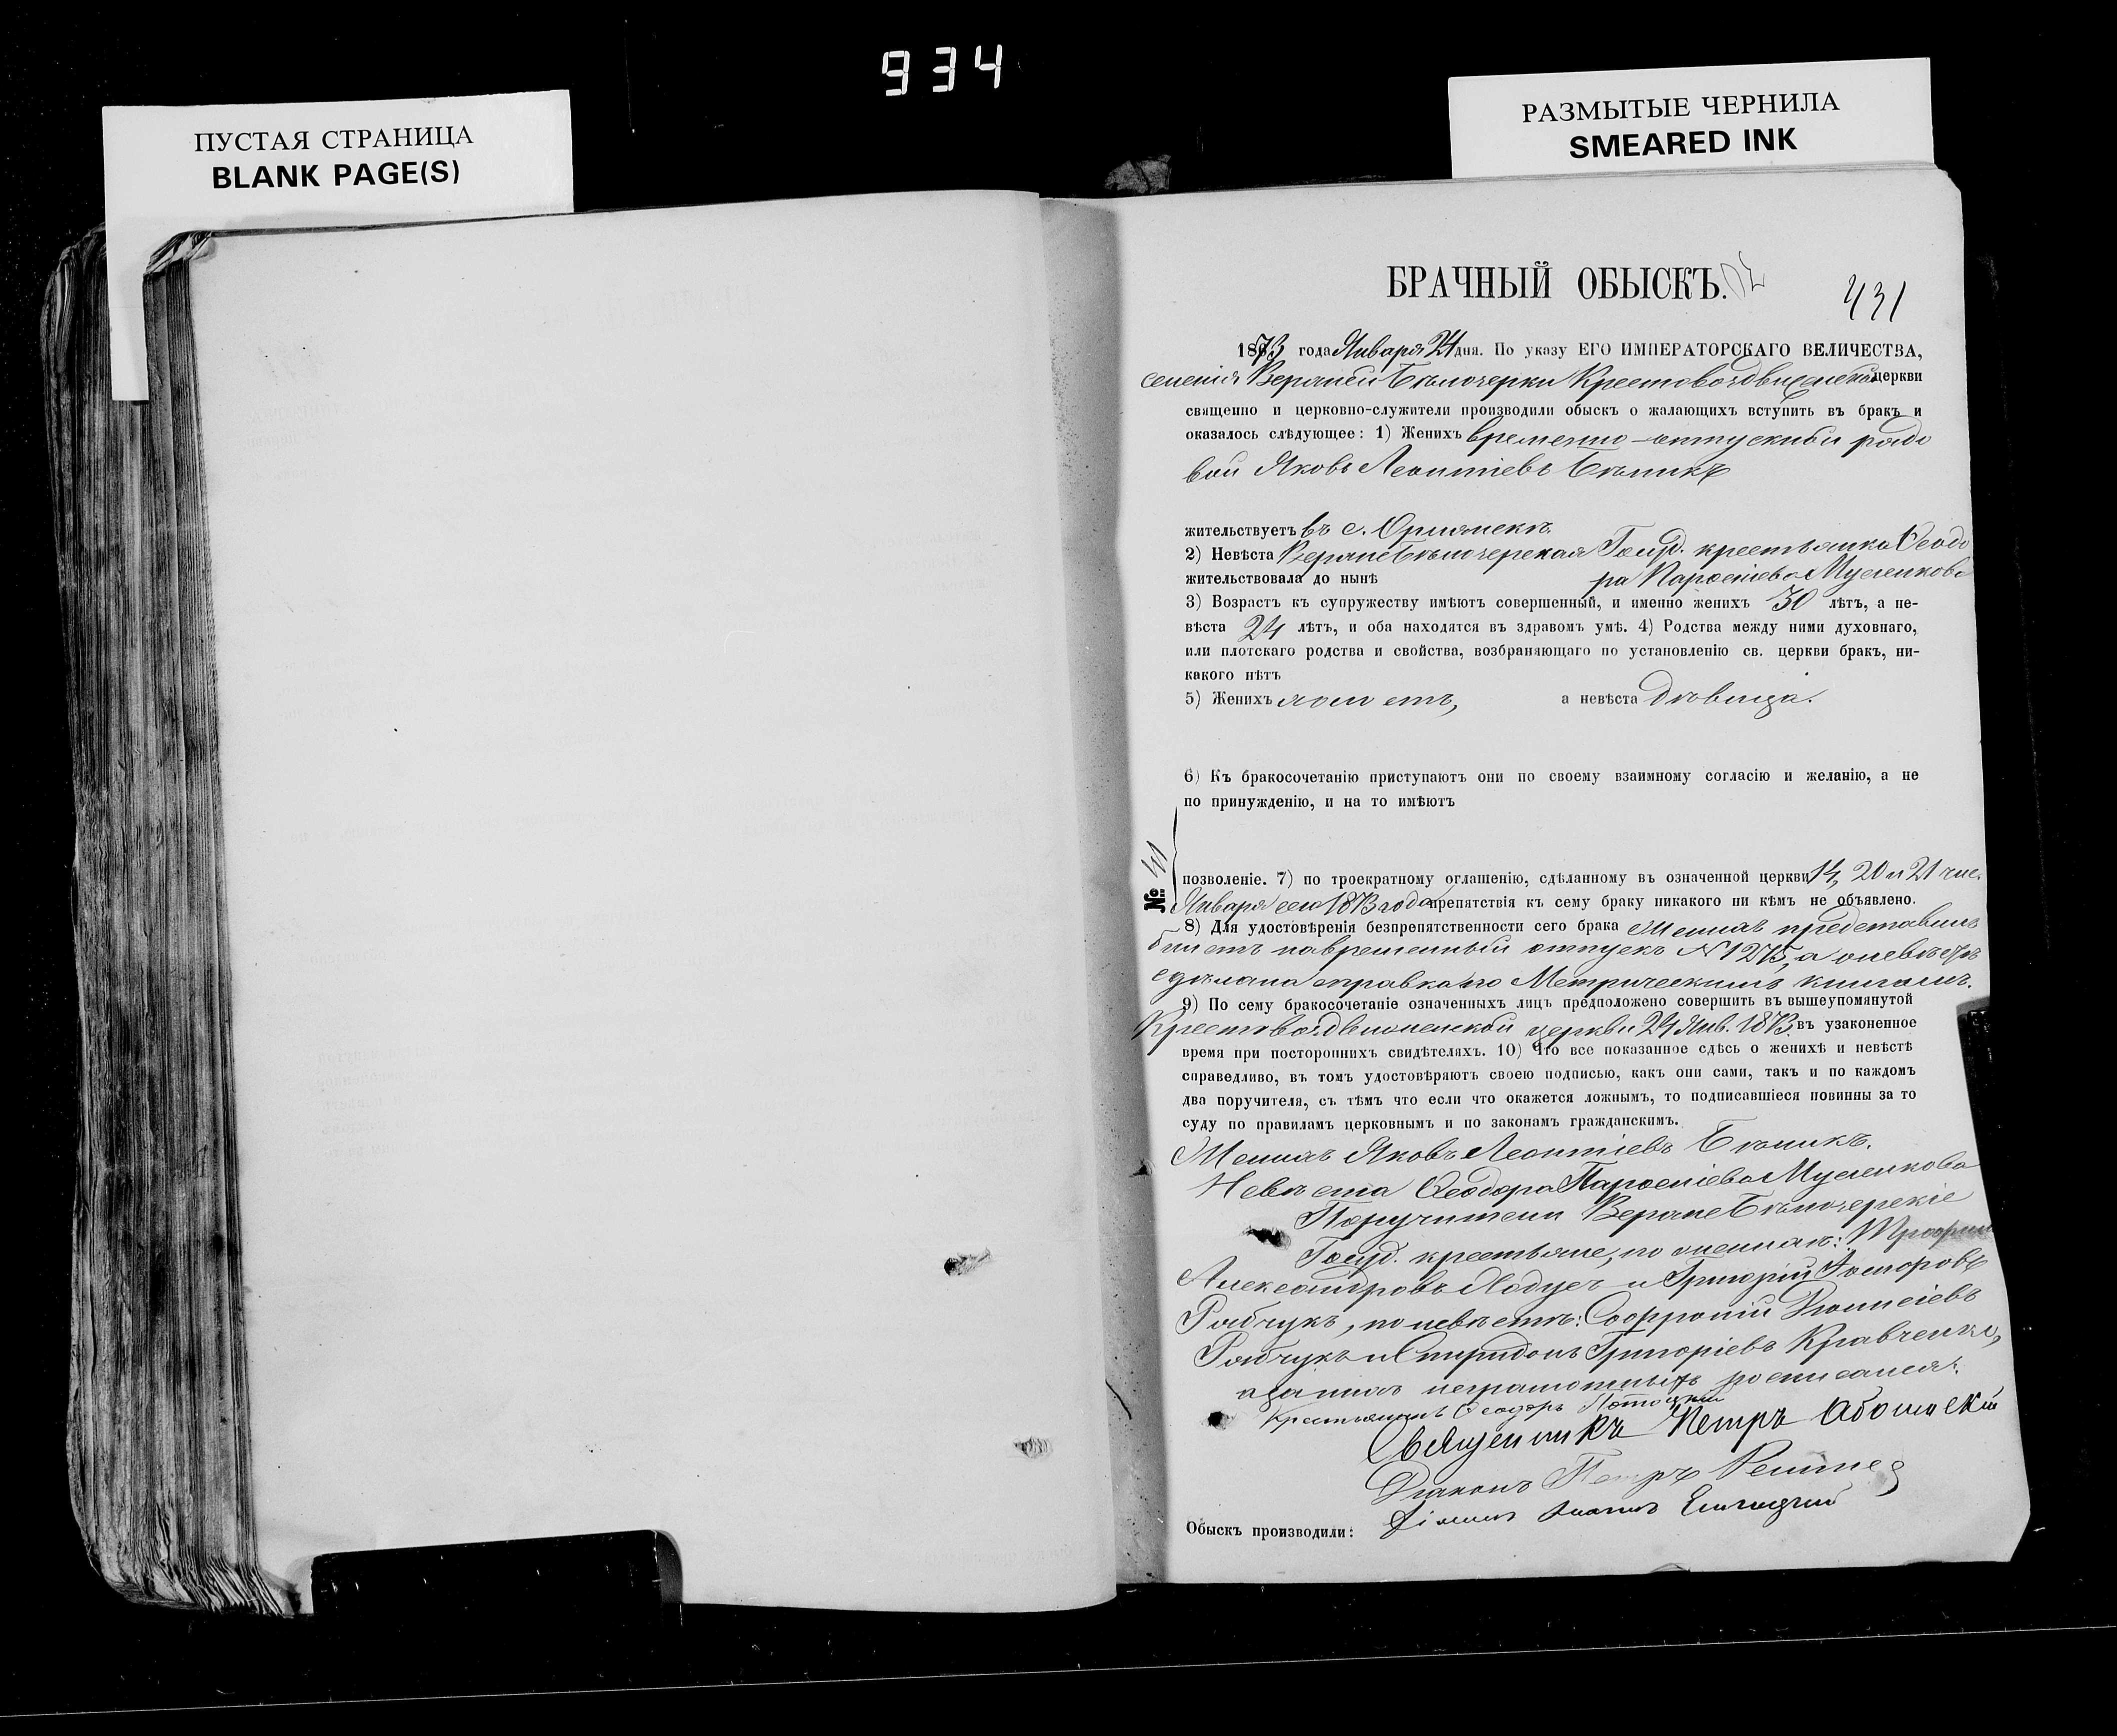 934
ПУСТАЯ СТРАНИЦА
BLANK PAGE(S)
РАЗМЫТЫЕ ЧЕРНИЛА
SMEARED INK
БРАЧНЫЙ ОБЫСКЪ.
431
1873 года Января 24 дня. По указу ЕГО ИМПЕРАТОРСКАГО ВЕЛИЧЕСТВА,
селенія Верхней Бѣлозерки Крестовоздвиженской церкви
священно и церковно-служители производили обыскъ о жалающихъ вступить въ бракъ и
оказалось слѣдующее: 1) Женихъ временно-отпускный рядо
вой Яковъ Леонтіевъ Бѣликъ
жительствуетъ въ с.
2) Невѣста Верхнебѣлозерская Госуд. крестьянка Ѳеодо
жительствовала до нынѣ ра Парѳеніева Мусіенкова
3) Возрастъ къ супружеству имѣютъ совершенный, и именно женихъ 30 лѣтъ, а не-
вѣста 24 лѣтъ, и оба находятся въ здравомъ умѣ. 4) Родства между ними духовнаго,
или плотскаго родства и свойства, возбраняющаго по установленію св. церкви бракъ, ни-
какого нѣтъ
5) Женихъ холостъ, а невѣста дѣвица.
6) Къ бракосочетанію приступаютъ они по своему взаимному согласію и желанію, а не
по принужденію, и на то имѣютъ
№
позволеніе. 7) по троекратному оглашенію, сдѣланному въ означенной церкви 14, 20 и 21 чис.
Января сего 1873 года препятствія къ сему браку никакого ни кѣмъ не объявлено.
8) Для удостовѣренія безпрепятственности сего брака Женихъ представилъ
билетъ на временный отпускъ № 1275, а о невѣстѣ
сдѣлана справка по Метрическимъ книгамъ.
9) По сему бракосочетаніе означенныхъ лицъ предположено совершить въ вышеупомянутой
Крестовоздвиженской церкви 24 Янв. 1873 въ узаконенное
время при постороннихъ свидѣтеляхъ. 10) Что все показанное сдѣсь о женихѣ и невѣстѣ
справедливо, въ томъ удостовѣряютъ своею подписью, какъ они сами, такъ и по каждомъ
два поручителя, съ тѣмъ что если что окажется ложнымъ, то подписавшіеся повинны за то
суду по правиламъ церковнымъ и по законамъ гражданскимъ.
Женихъ Яковъ Леонтіевъ Бѣликъ.
Невѣста Ѳеодора Парѳеніева Мусіенкова
Поручители Верхнебѣлозерскіе
Госуд. крестьяне, по женихѣ: Трофим
Александровъ и Григорій
Рябчукъ, по невѣстѣ: Софроній Діонисіевъ
Рябчукъ и Спиридонъ Григоріевъ Кравченко,
а за нихъ неграмотныхъ росписался:
Крестьянинъ Ѳеодоръ
Священникъ Петръ
Діаконъ Петръ
Обыскъ производили: